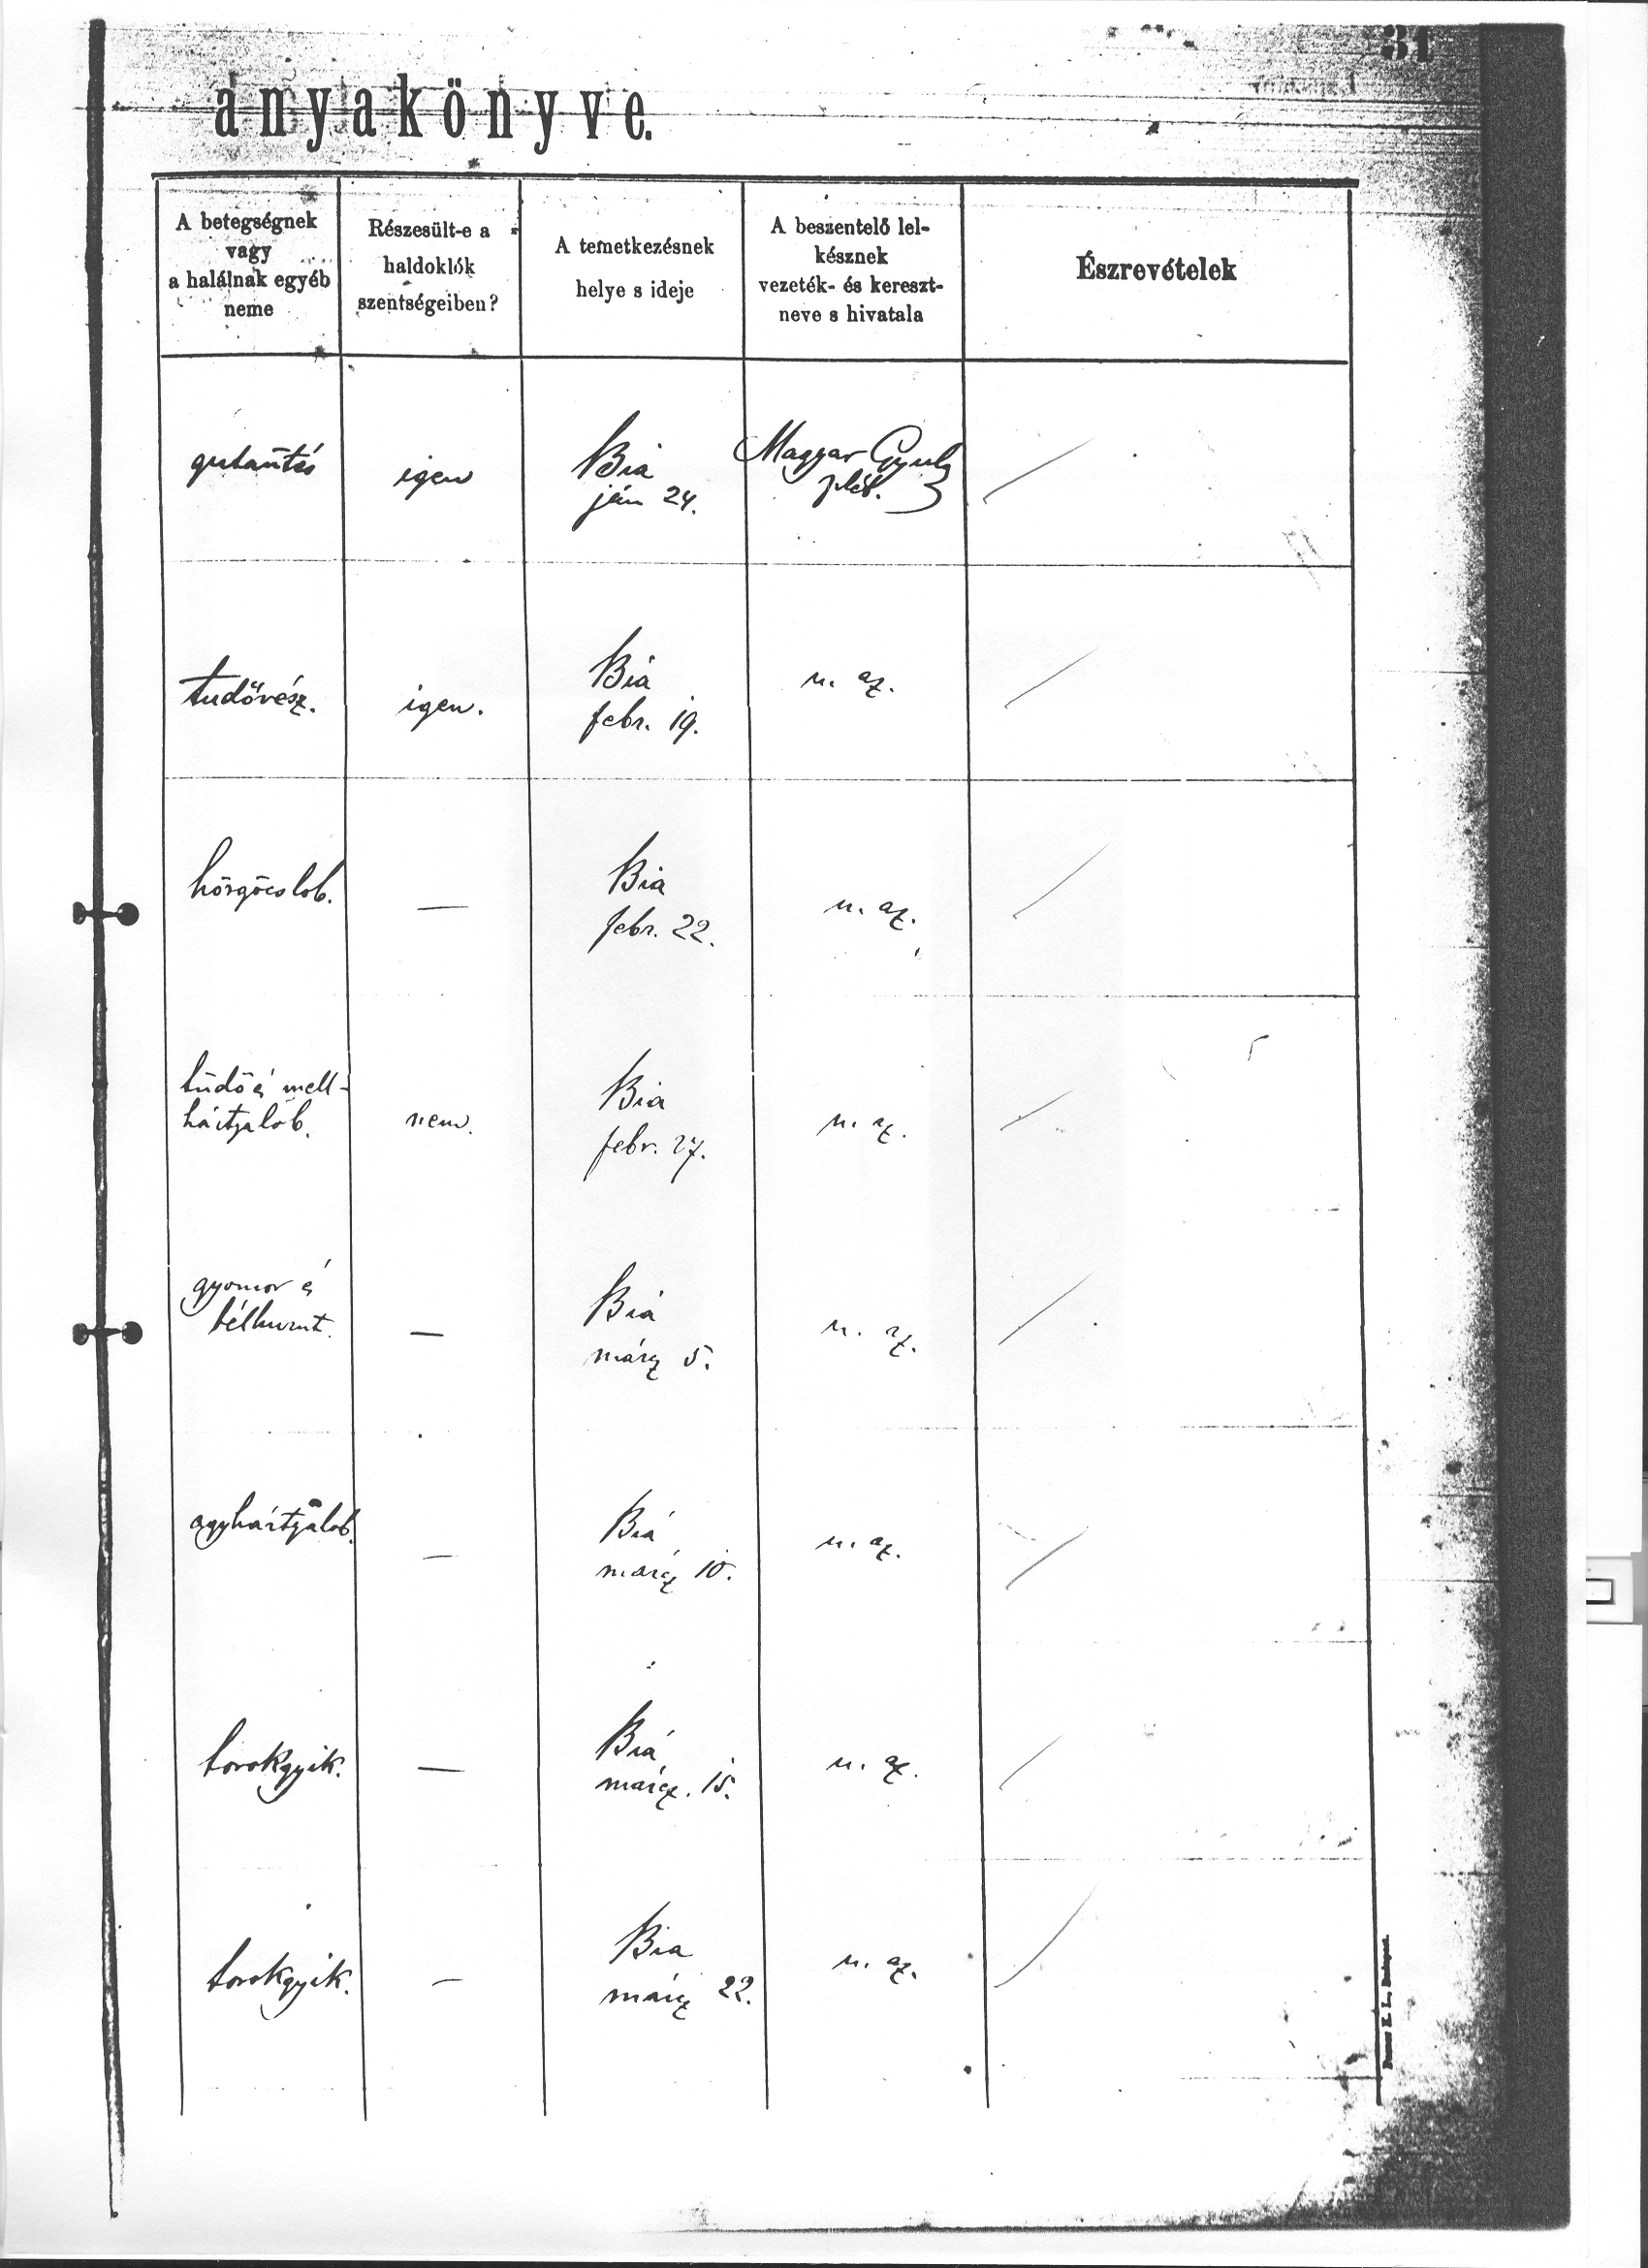 31
anyakönyve.
A betegségnek
vagy
a halálnak egyéb
neme
Részesült-e a
haldoklók
szentségeiben?
A temetkezésnek
helye s ideje
A beszentelő lel-
késznek
vezeték- és kereszt-
neve s hivatala
Észrevételek
gutaütés
igen
Bia
ján 24.
Magyar Gyula
pléb.
tüdővész.
igen.
Biá
febr. 19.
u. az.
hörgőcslob.
—
Bia
febr. 22.
u. az.
tüdő és mell-
hártyalob.
nem.
Bia
febr. 27.
u. az.
gyomor és
bélhurut.
—
Biá
márcz 5.
u. az.
agyhártyalob.
—
Biá
márcz 10.
u. az.
torokgyik.
—
Biá
márcz. 15.
u. az.
torokgyik.
—
Bia
márcz 22.
u. az.